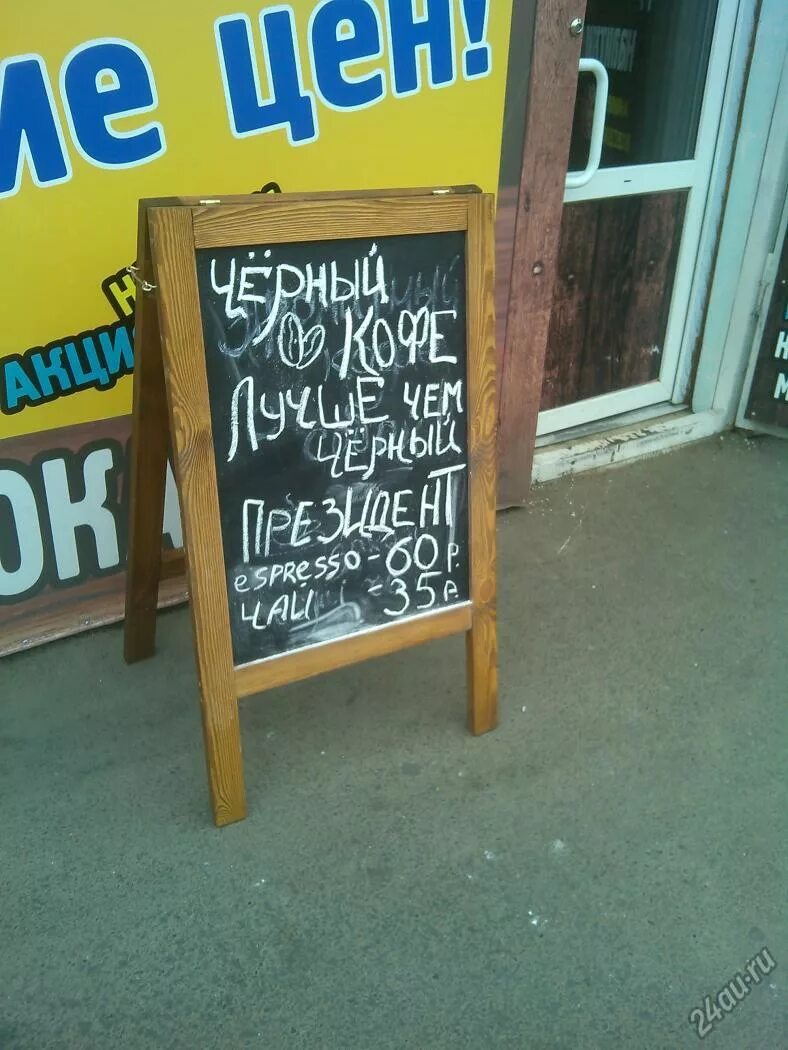 ие цен!
АКЦИ
ОКА
ЧЁРНЫЙ
КОФЕ
ЛУЧШЕ ЧЕМ
ЧЁРНЫЙ
ПРЕЗИДЕНТ
espresso - 60 р.
ЧАЙ - 35 р.
24au.ru